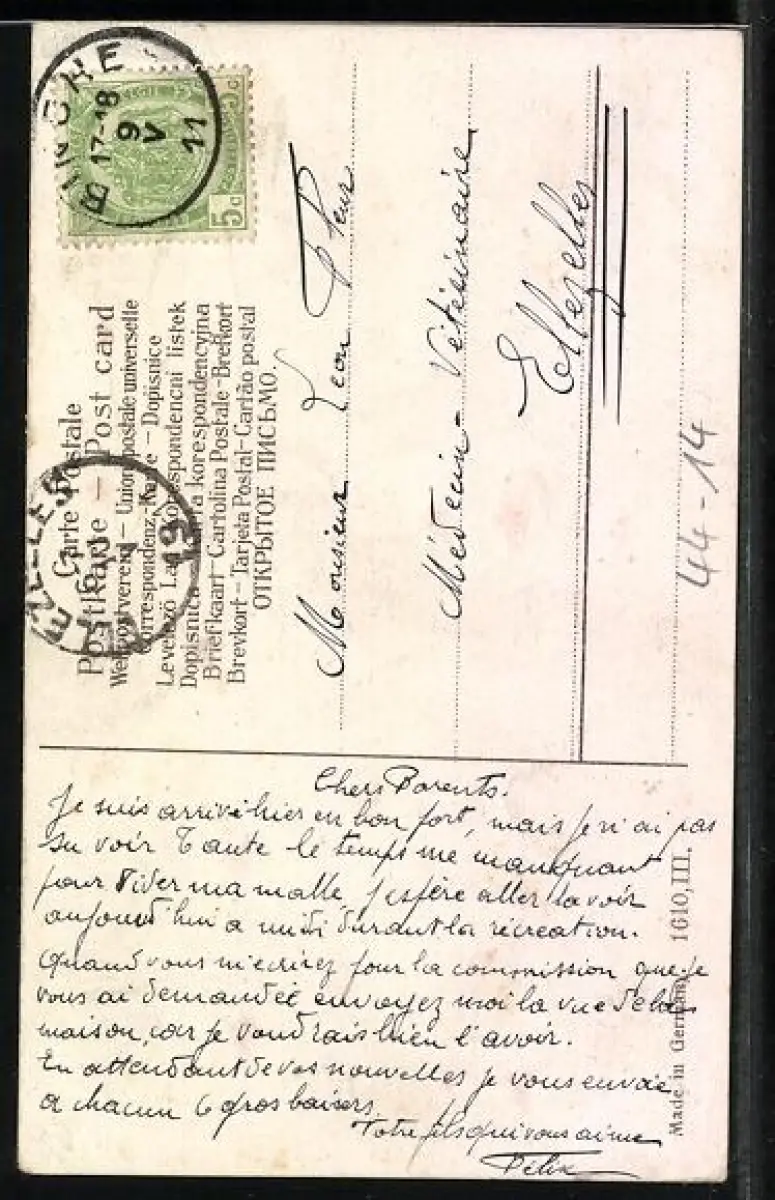 BINCHE
17-18
9
V
11
5 C
5 C
Carte Postale
Postkarte – Post card
Weltpostverein – Union postale universelle
Correspondenz-Karte – Dopisnice
Levelező Lap – Korrespondenční listek
Dopisnica – Karta korespondencyjna
Briefkaart – Cartolina Postale – Brefkort
Brevkort – Tarjeta Postal – Cartão postal
ОТКРЫТОЕ ПИСЬМО.
ELLEZELLES
Monsieur Leon
Médecin-Vétérinaire
Ellezelles
44-14
Chers Parents.
Je suis arrivé hier en bon port, mais je n'ai pas
su voir Tante le temps me manquant
pour vider ma malle. J'espère aller la voir
aujourd'hui a midi durant la récréation.
Quand vous m'ecrirez pour la commission que je
vous ai demandée envoyez moi la vue de la
maison, car je voudrais bien l'avoir.
En attendant de vos nouvelles je vous envoie
a chacun 6 gros baisers.
Votre fils qui vous aime
Félix
Made in Germany 1610, III.